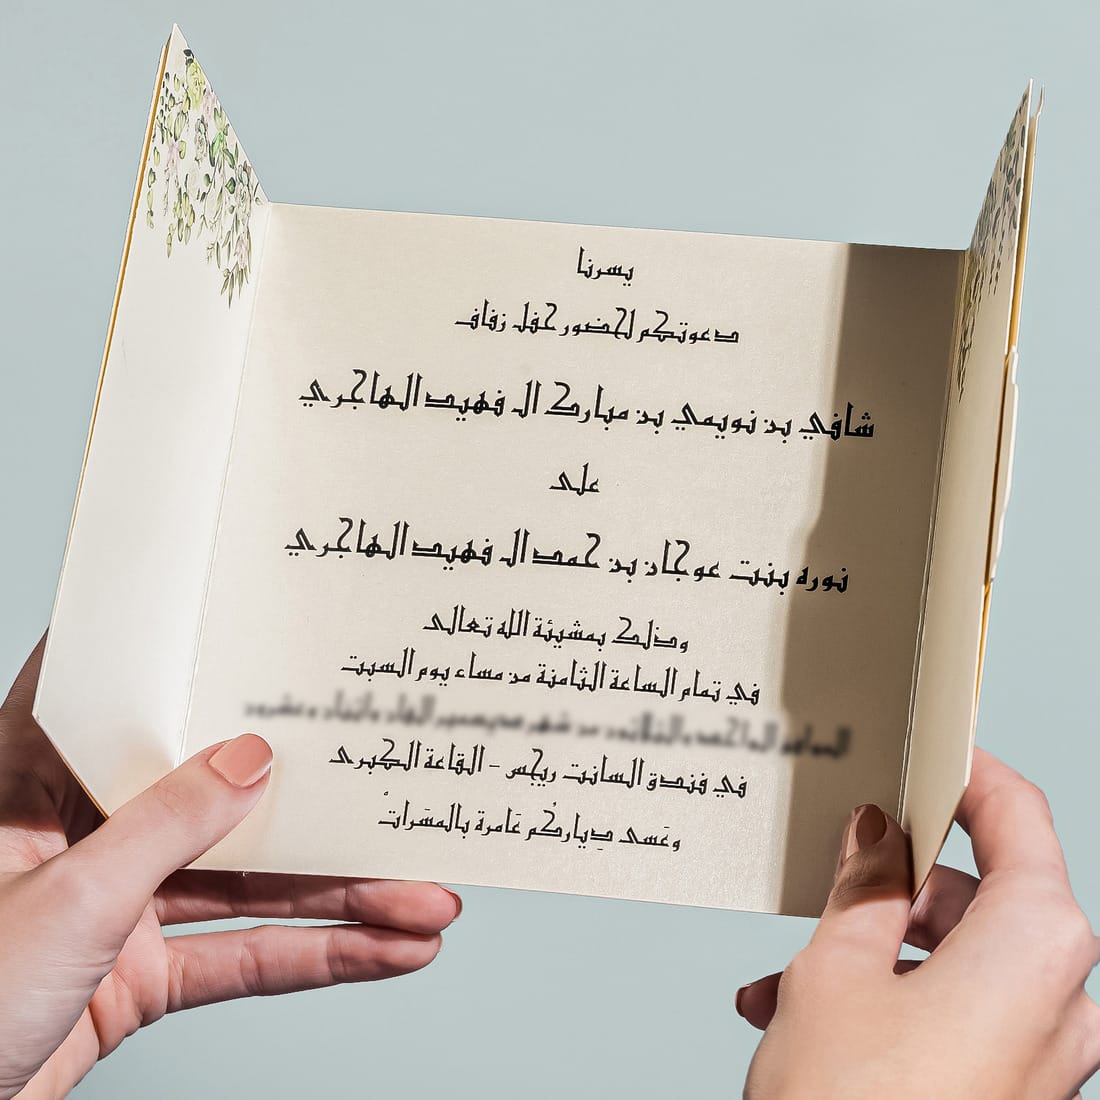 يسرنا
دعوتكم لحضور حفل زفاف
شافي بن نويمي بن مبارك ال فهيد الهاجري
على
نوره بنت عوجان بن حمد ال فهيد الهاجري
وذلك بمشيئة الله تعالى
في تمام الساعة الثامنة من مساء يوم السبت
في فندق السانت ريجس - القاعة الكبرى
وعَسى دِياركُم عَامرة بالمسَراتْ